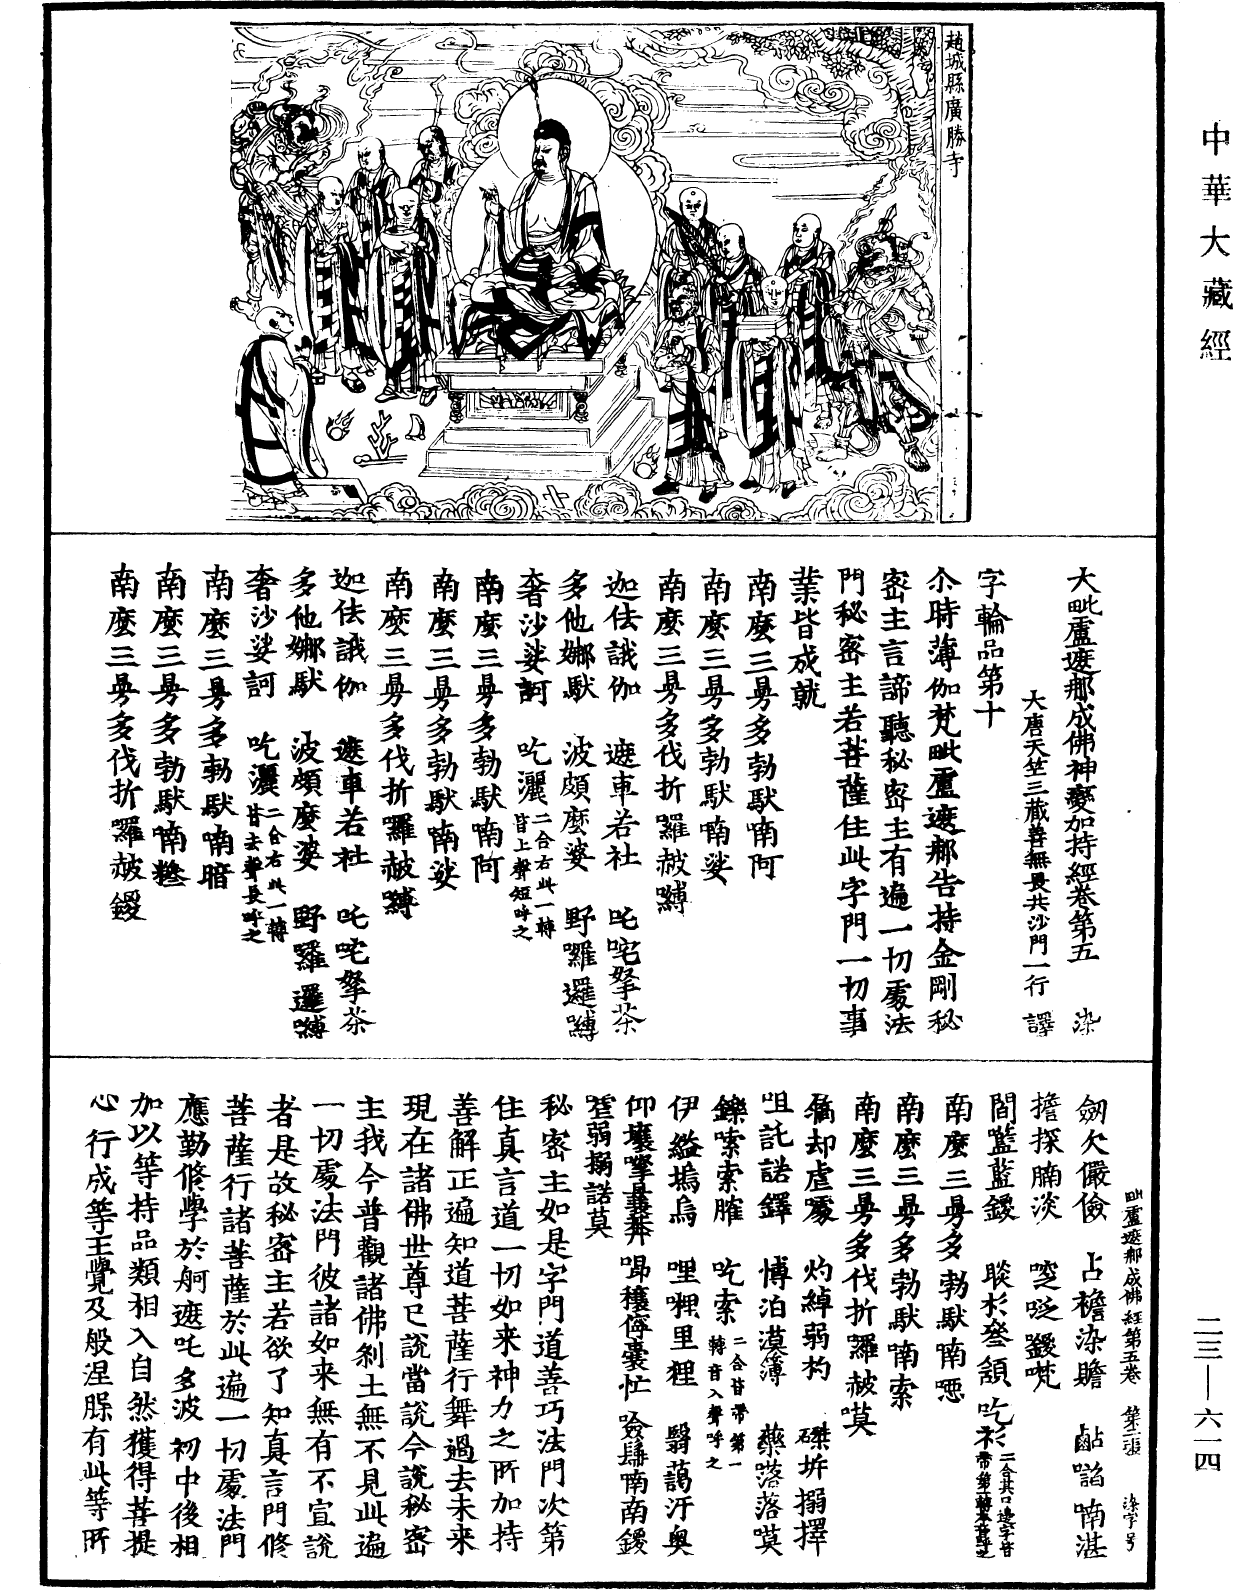 中華大藏經
二三—六一四
趙城縣廣勝寺
大毗盧遮那成佛神變加持經卷第五 染
大唐天竺三藏善無畏共沙門一行 譯
字輪品第十
尒時薄伽梵毗盧遮那告持金剛秘
密主言諦聽秘密主有遍一切處法
門秘密主若菩薩住此字門一切事
業皆成就
南麼三曼多勃馱喃阿
南麼三曼多勃馱喃娑
南麼三曼多伐折囉赧嚩
迦佉誐伽 遮車若社 吒咤拏荼
多他娜馱 波頗麼婆 野囉邏嚩
奢沙娑訶 吃灑二合右此一轉皆上聲短呼之
南麼三曼多勃馱喃阿
南麼三曼多勃馱喃娑
南麼三曼多伐折囉赧嚩
迦佉誐伽 遮車若社 吒咤拏荼
多他娜馱 波頗麼婆 野囉邏嚩
奢沙娑訶 吃灑二合右此一轉皆去聲長呼之
南麼三曼多勃馱喃暗
南麼三曼多勃馱喃糝
南麼三曼多伐折囉赧鑁
毗盧遮那成佛經第五卷 第二張 染字号
劒欠儼儉 占襜染贍 㸃諂喃湛
擔探腩淡 唼鑁梵
閻囒藍鑁 睒衫參頷 吃衫
南麼三曼多勃馱喃噁
南麼三曼多勃馱喃索
南麼三曼多伐折囉赧莫
屩却虐噱 灼綽弱杓 磔坼搦擇
咀託諾鐸 博泊漠簿 藥㗚落莫
鑠嗦索臛 吃索二合皆帶第一轉音入聲呼之
伊縊塢烏 哩里狸 翳藹汙奧
仰壤拏曩莽 㘈穰儜囊忙 喃南鑁
弱搦諾莫
秘密主如是字門道善巧法門次第
住真言道一切如来神力之所加持
善解正遍知道菩薩行舞過去未来
現在諸佛世尊已說當說今說秘密
主我今普觀諸佛刹土無不見此遍
一切處法門彼諸如来無有不宣說
者是故秘密主若欲了知真言門修
菩薩行諸菩薩於此遍一切處法門
應勤修學於阿遮吒多波初中後相
加以等持品類相入自然獲得菩提
心行成等正覺及般涅縣有此等所